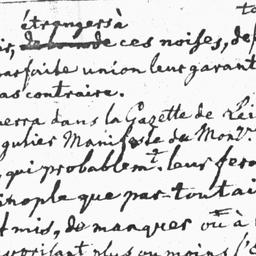 étrangers à
ir, ces noises, de
parfaite union leur garant
as contraire.
verra dans la Gazette de Lei
gulier Manifeste du Mon.
qui probablem.t leur fero
inople que par-tout ai
t mis, de manques où à
plus ou moins l'